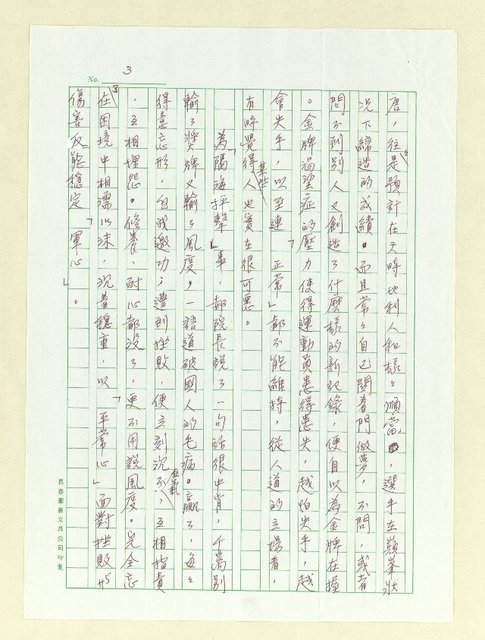 No. 3
度，往往是預計在天時地利人和樣樣順當，選手在巔峯狀
況下締造的成績。而且常常自己關着門做夢，不問或者
問不到別人又創造了什麼樣的新紀錄，便自以為金牌在握
。金牌渴望症的壓力使得運動員患得患失，越怕失手，越
會失手，以至連「正常」都不能維持，從人道的立場看，
有時覺得某些人也實在很可惡。
為隔海抨擊一事，郝院長說了一句話很中肯，千萬別
輸了獎牌又輸了風度。一語道破國人的毛病。贏了，每每
得意忘形，自我邀功；遭到挫敗，便立刻沉不住氣，互相指責
，互相埋怨。修養、耐心都沒了，更不用說風度。完全忘
了在困境中相濡以沫，沉着穩重，以「平常心」面對挫敗的
傷害反能穩定「軍心」。
長春圖書文具公司印製